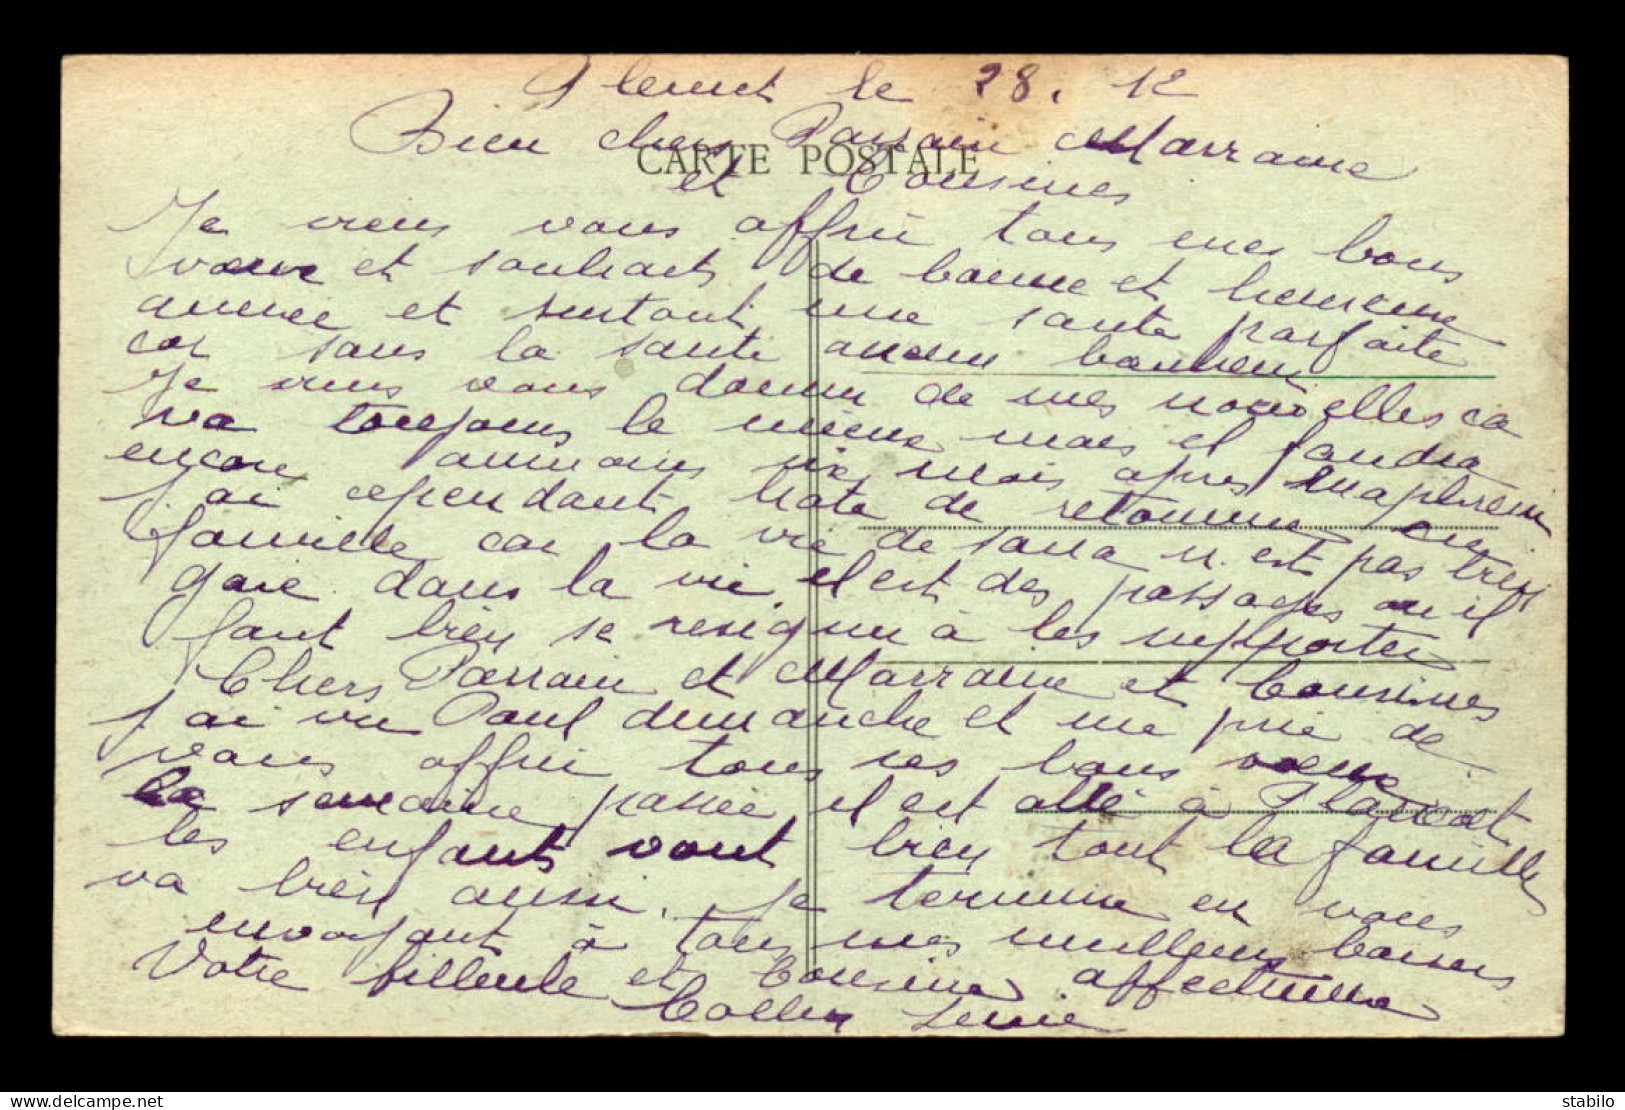 Plemet le 28.12
Bien chers Parrain Marraine
CARTE POSTALE
et Cousines
Je viens vous offrir tous mes bons
voeux et souhaits de bonne et heureuse
année et surtout une santé parfaite
car sans la santé aucun bonheur
Je viens vous donner de mes nouvelles ca
va toujours le même mais il faudra
encore six mois apres
j'ai cependant hate de retourner en
famille car la vie de sana n'est pas tres
gaie dans la vie il est des passages ou il
faut bien se resigner à les supporter
Chers Parrain et Marraine et Cousines
j'ai vu Paul dimanche et me prie de
vous offrir tous ses bons voeux
la semaine passée il est allé à Plancoet
les enfants vont bien tout la famille
va bien aussi. Je termine en vous
envoyant à tous mes meilleurs baisers
Votre filleule et Cousine affectueuse
Collin
stabilo